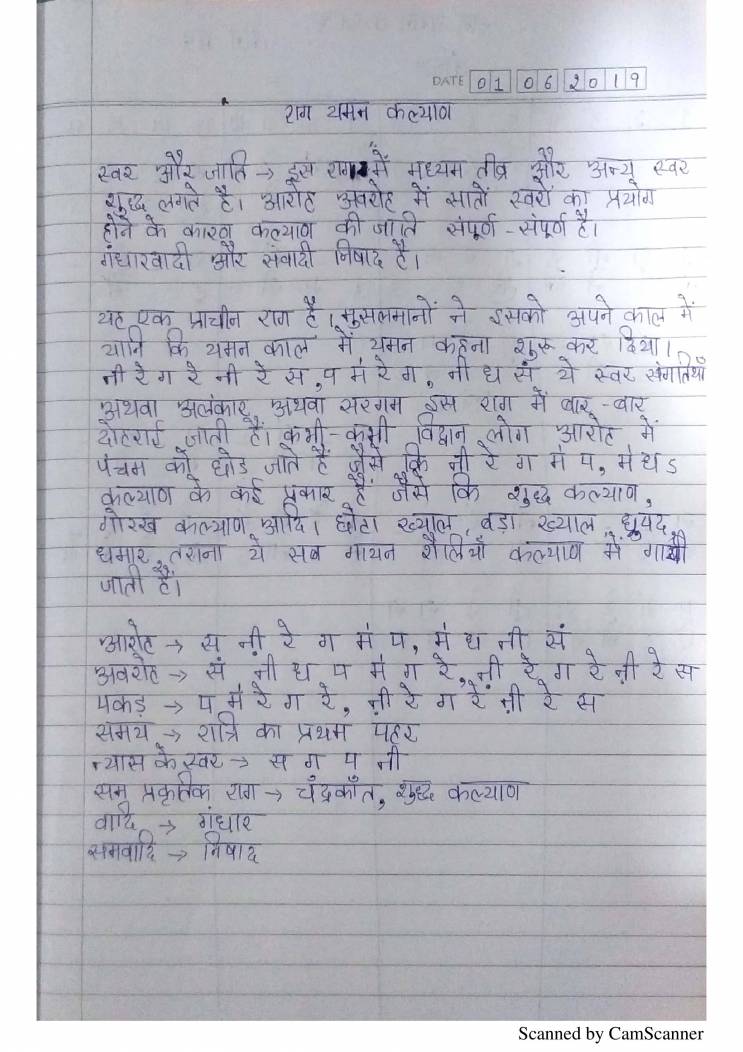 DATE 01 06 2019
राग यमन कल्याण
स्वर और जाति → इस राग में मध्यम तीव्र और अन्य स्वर
शुद्ध लगते है। आरोह अवरोह में सातों स्वरों का प्रयोग
होने के कारण कल्याण की जाति संपूर्ण - संपूर्ण है।
गंधारवादी और संवादी निषाद है।
यह एक प्राचीन राग है। मुसलमानों ने इसको अपने काल में
यानि कि यमन काल में यमन कहना शुरू कर दिया।
नी रे ग रे नी रे स, प मं रे ग, नी ध सं ये स्वर संगतियाँ
अथवा अलंकार अथवा सरगम इस राग में बार - बार
दोहराई जाती है। कभी - कभी विद्वान लोग आरोह में
पंचम को छोड जाते हैं जैसे कि नी रे ग मं प, मं ध ऽ
कल्याण के कई प्रकार हैं जैसे कि शुद्ध कल्याण,
गोरख कल्याण आदि। छोटा ख्याल, बड़ा ख्याल, ध्रुपद,
धमार, तराना ये सब गायन शैलियाँ कल्याण में गायी
जाती हैं।
आरोह → स नी़ रे ग मं प, मं ध नी सं
अवरोह → सं नी ध प मं ग रे, नी़ रे ग रे नी़ रे स
पकड़ → प मं रे ग रे, नी़ रे ग रे नी़ रे स
समय → रात्रि का प्रथम पहर
न्यास के स्वर → स ग प नी
सम प्रकृतिक राग → चँद्रकाँत, शुद्ध कल्याण
वादि → गंधार
समवादि → निषाद
Scanned by CamScanner